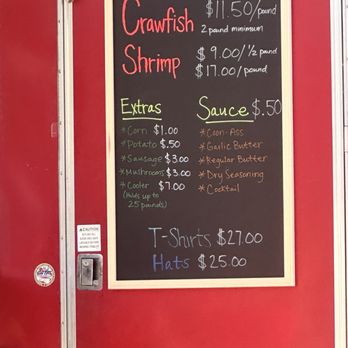 Crawfish $11.50/pound
2 pound minimum
Shrimp $9.00/½ pound
$17.00/pound
Extras
*Corn $1.00
*Potato $.50
*Sausage $3.00
*Mushrooms $3.00
*Cooler $7.00
(holds up to
25 pounds)
Sauce $.50
*Coon-Ass
*Garlic Butter
*Regular Butter
*Dry Seasoning
*Cocktail
T-Shirts $27.00
Hats $25.00
CAUTION